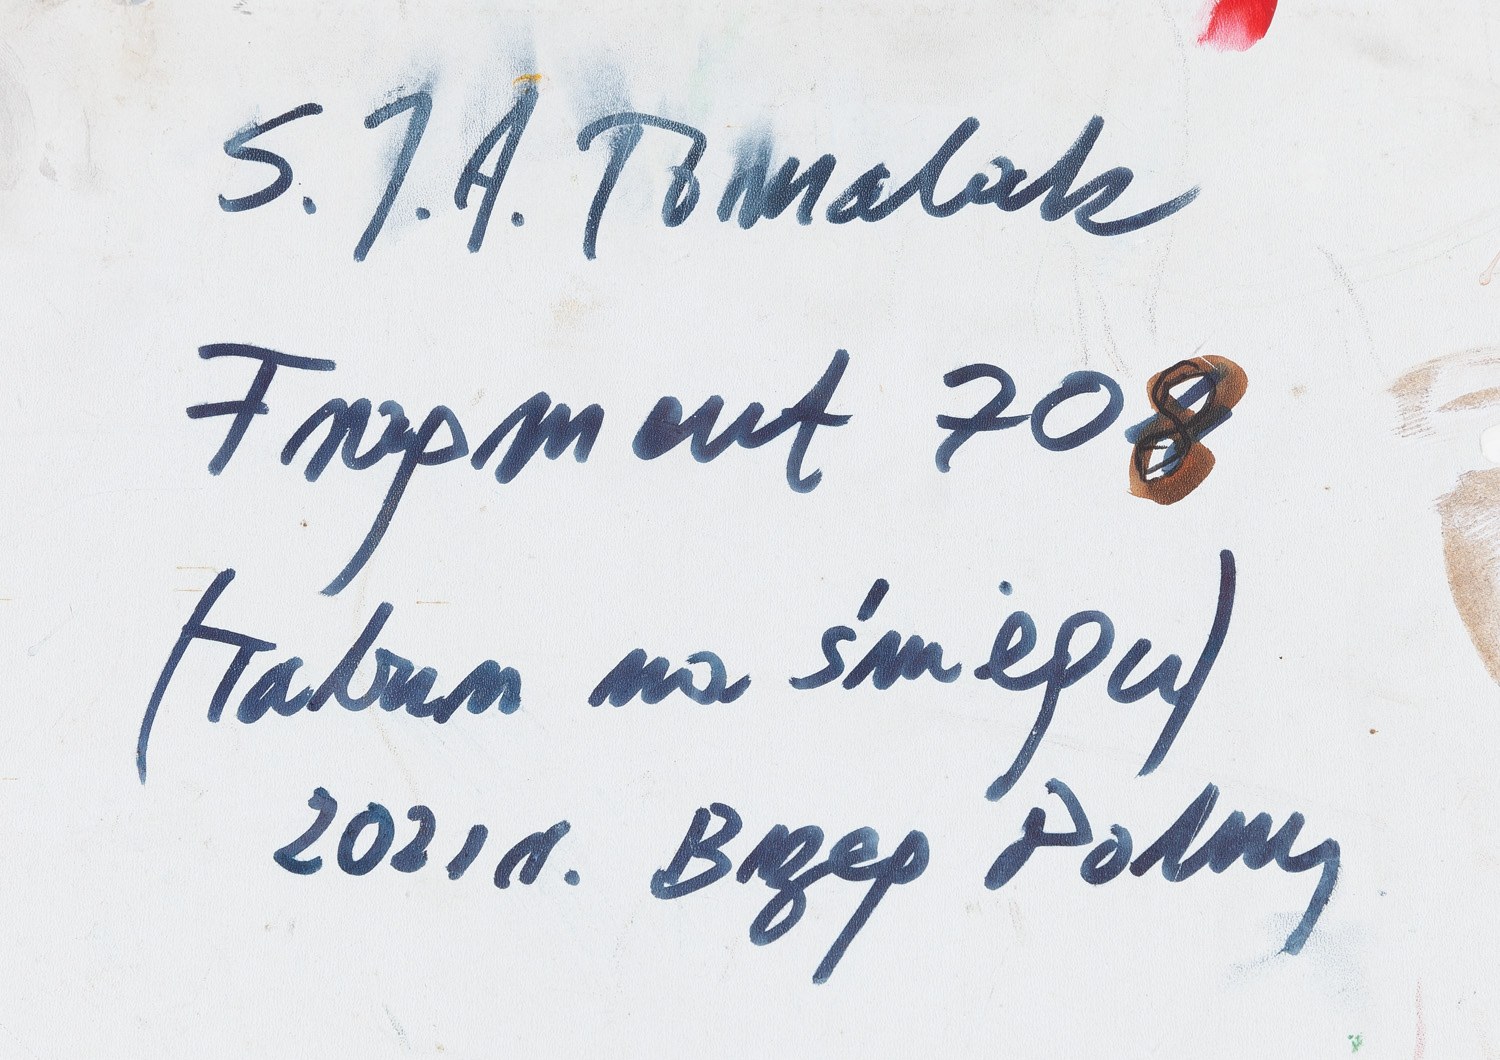 S. J. A. Tomalak
Fragment 708
(tabun na śniegu)
2021 r. Brzeg Dolny